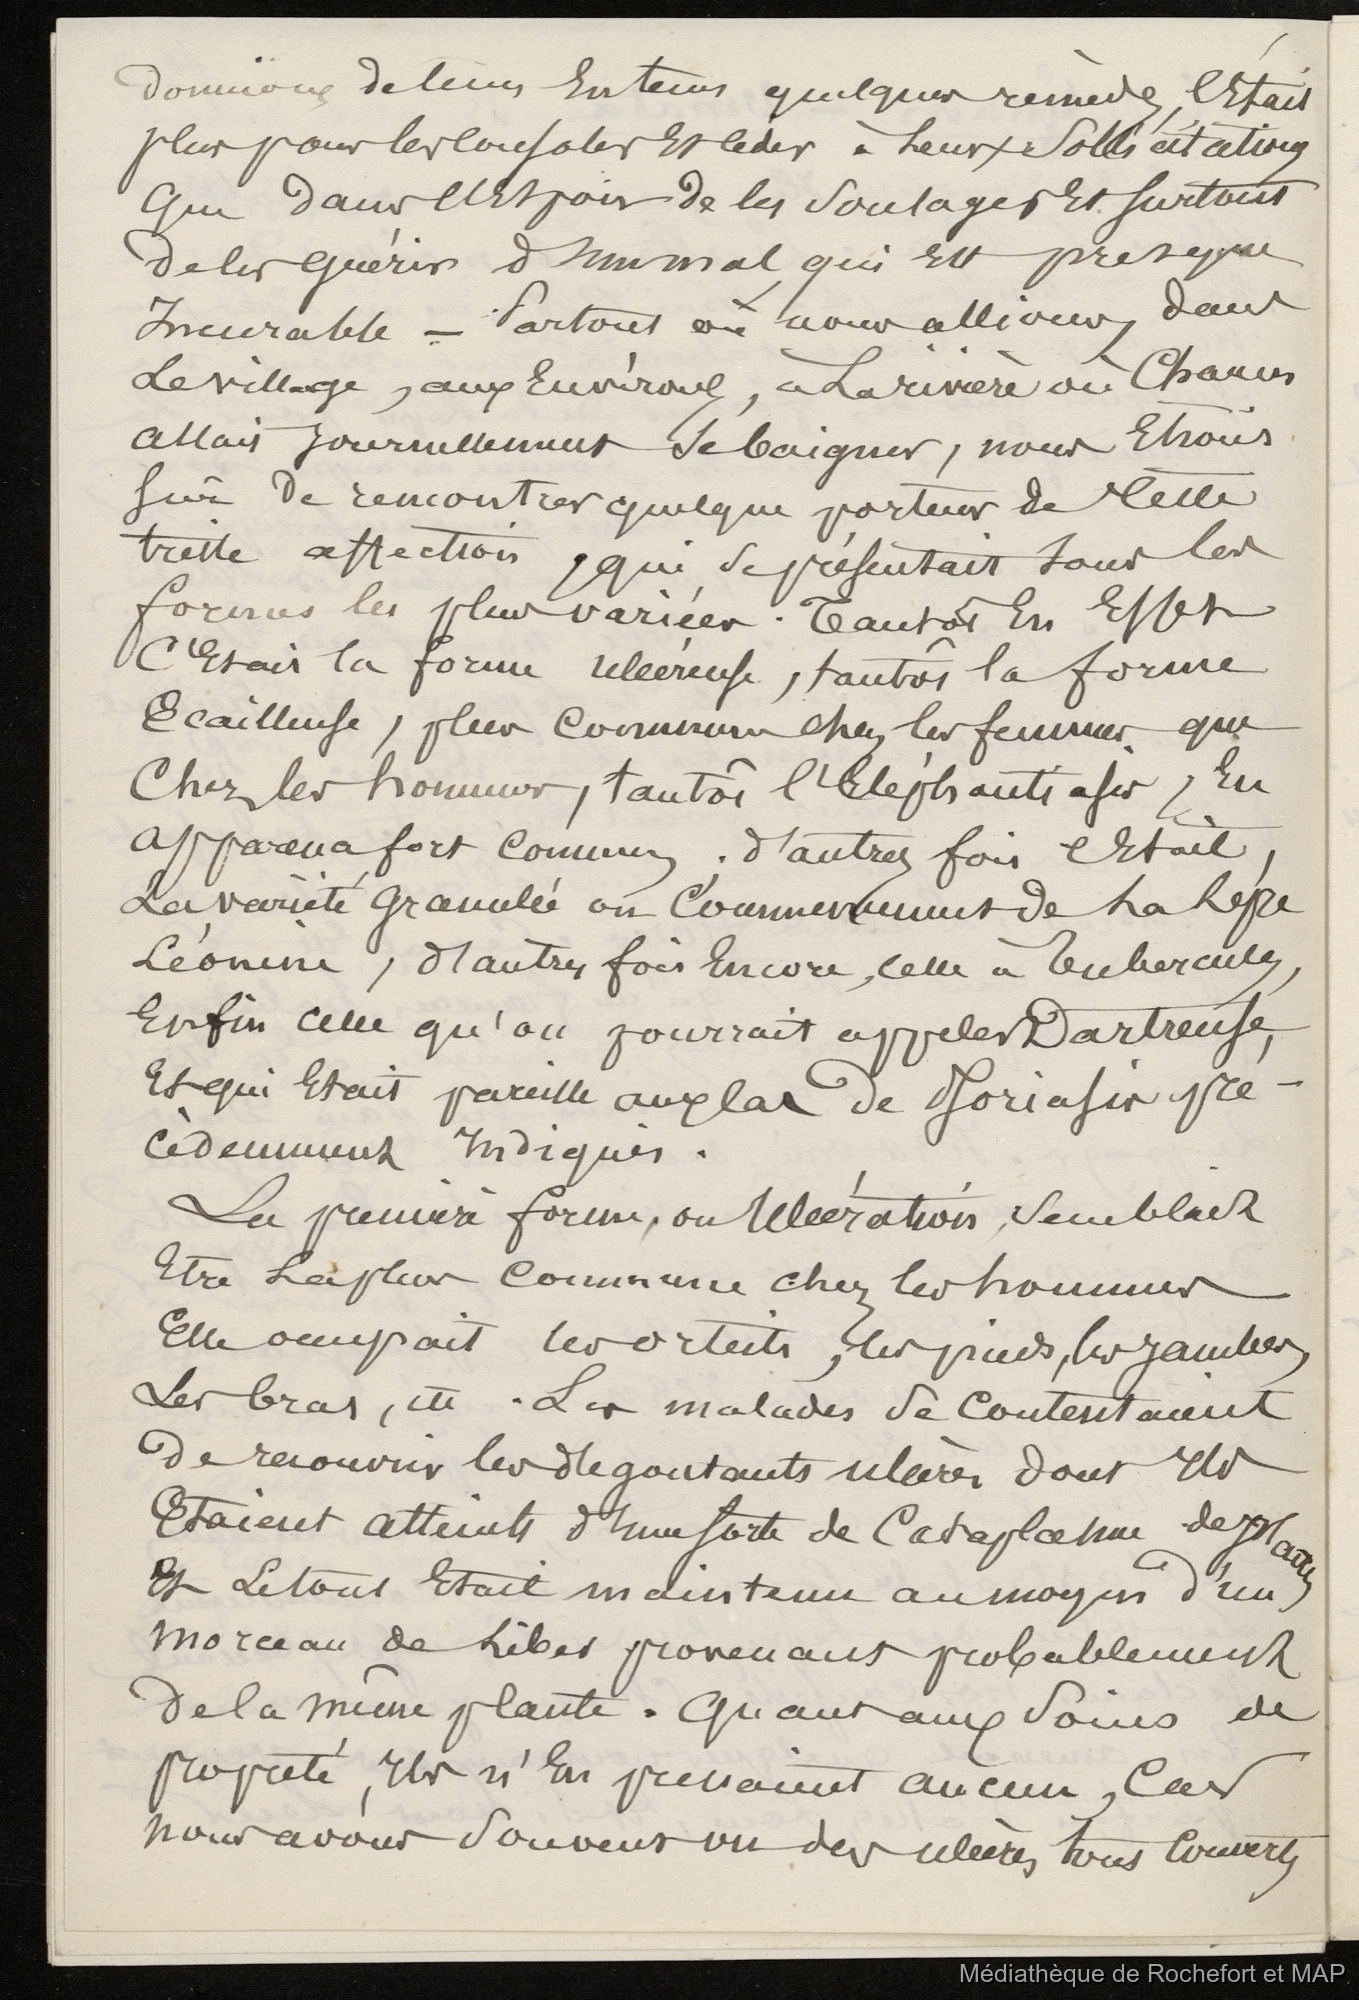 donnions de tems en tems quelques remèdes, c'était
plus pour les consoler et céder à leurs sollicitations
que dans l'espoir de les soulager et surtout
de les guérir d'un mal qui est presque
incurable — Partout où nous allions, dans
le village, aux environs, à la rivière où chacun
allait journellement se baigner, nous étions
sûr de rencontrer quelque porteur de cette
triste affection, qui se présentait sous les
formes les plus variées. Tantôt en effet
c'était la forme ulcéreuse, tantôt la forme
écailleuse, plus commune chez les femmes que
chez les hommes, tantôt l'éléphantiasis, en
apparence fort commun, d'autres fois c'était,
la variété granulée ou commencement de la lèpre
léonine, d'autres fois encore, celle à tubercules,
enfin celle qu'on pourrait appeler Dartreuse,
et qui était pareille aux plaques de Psoriasis pré-
cédemment indiqués.
La première forme, ou ulcération, semblait
être la plus commune chez les hommes
Elle occupait les orteils, les pieds, les jambes,
les bras, etc. Les malades se contentaient
de recouvrir les dégoutants ulcères dont ils
étaient atteints d'une sorte de cataplasme de plantes
et le tout était maintenu au moyen d'un
morceau de liber provenant probablement
de la même plante. Quant aux soins de
propreté, ils n'en prenaient aucun, car
nous avons souvent vu des ulcères tous couverts
Médiathèque de Rochefort et MAP